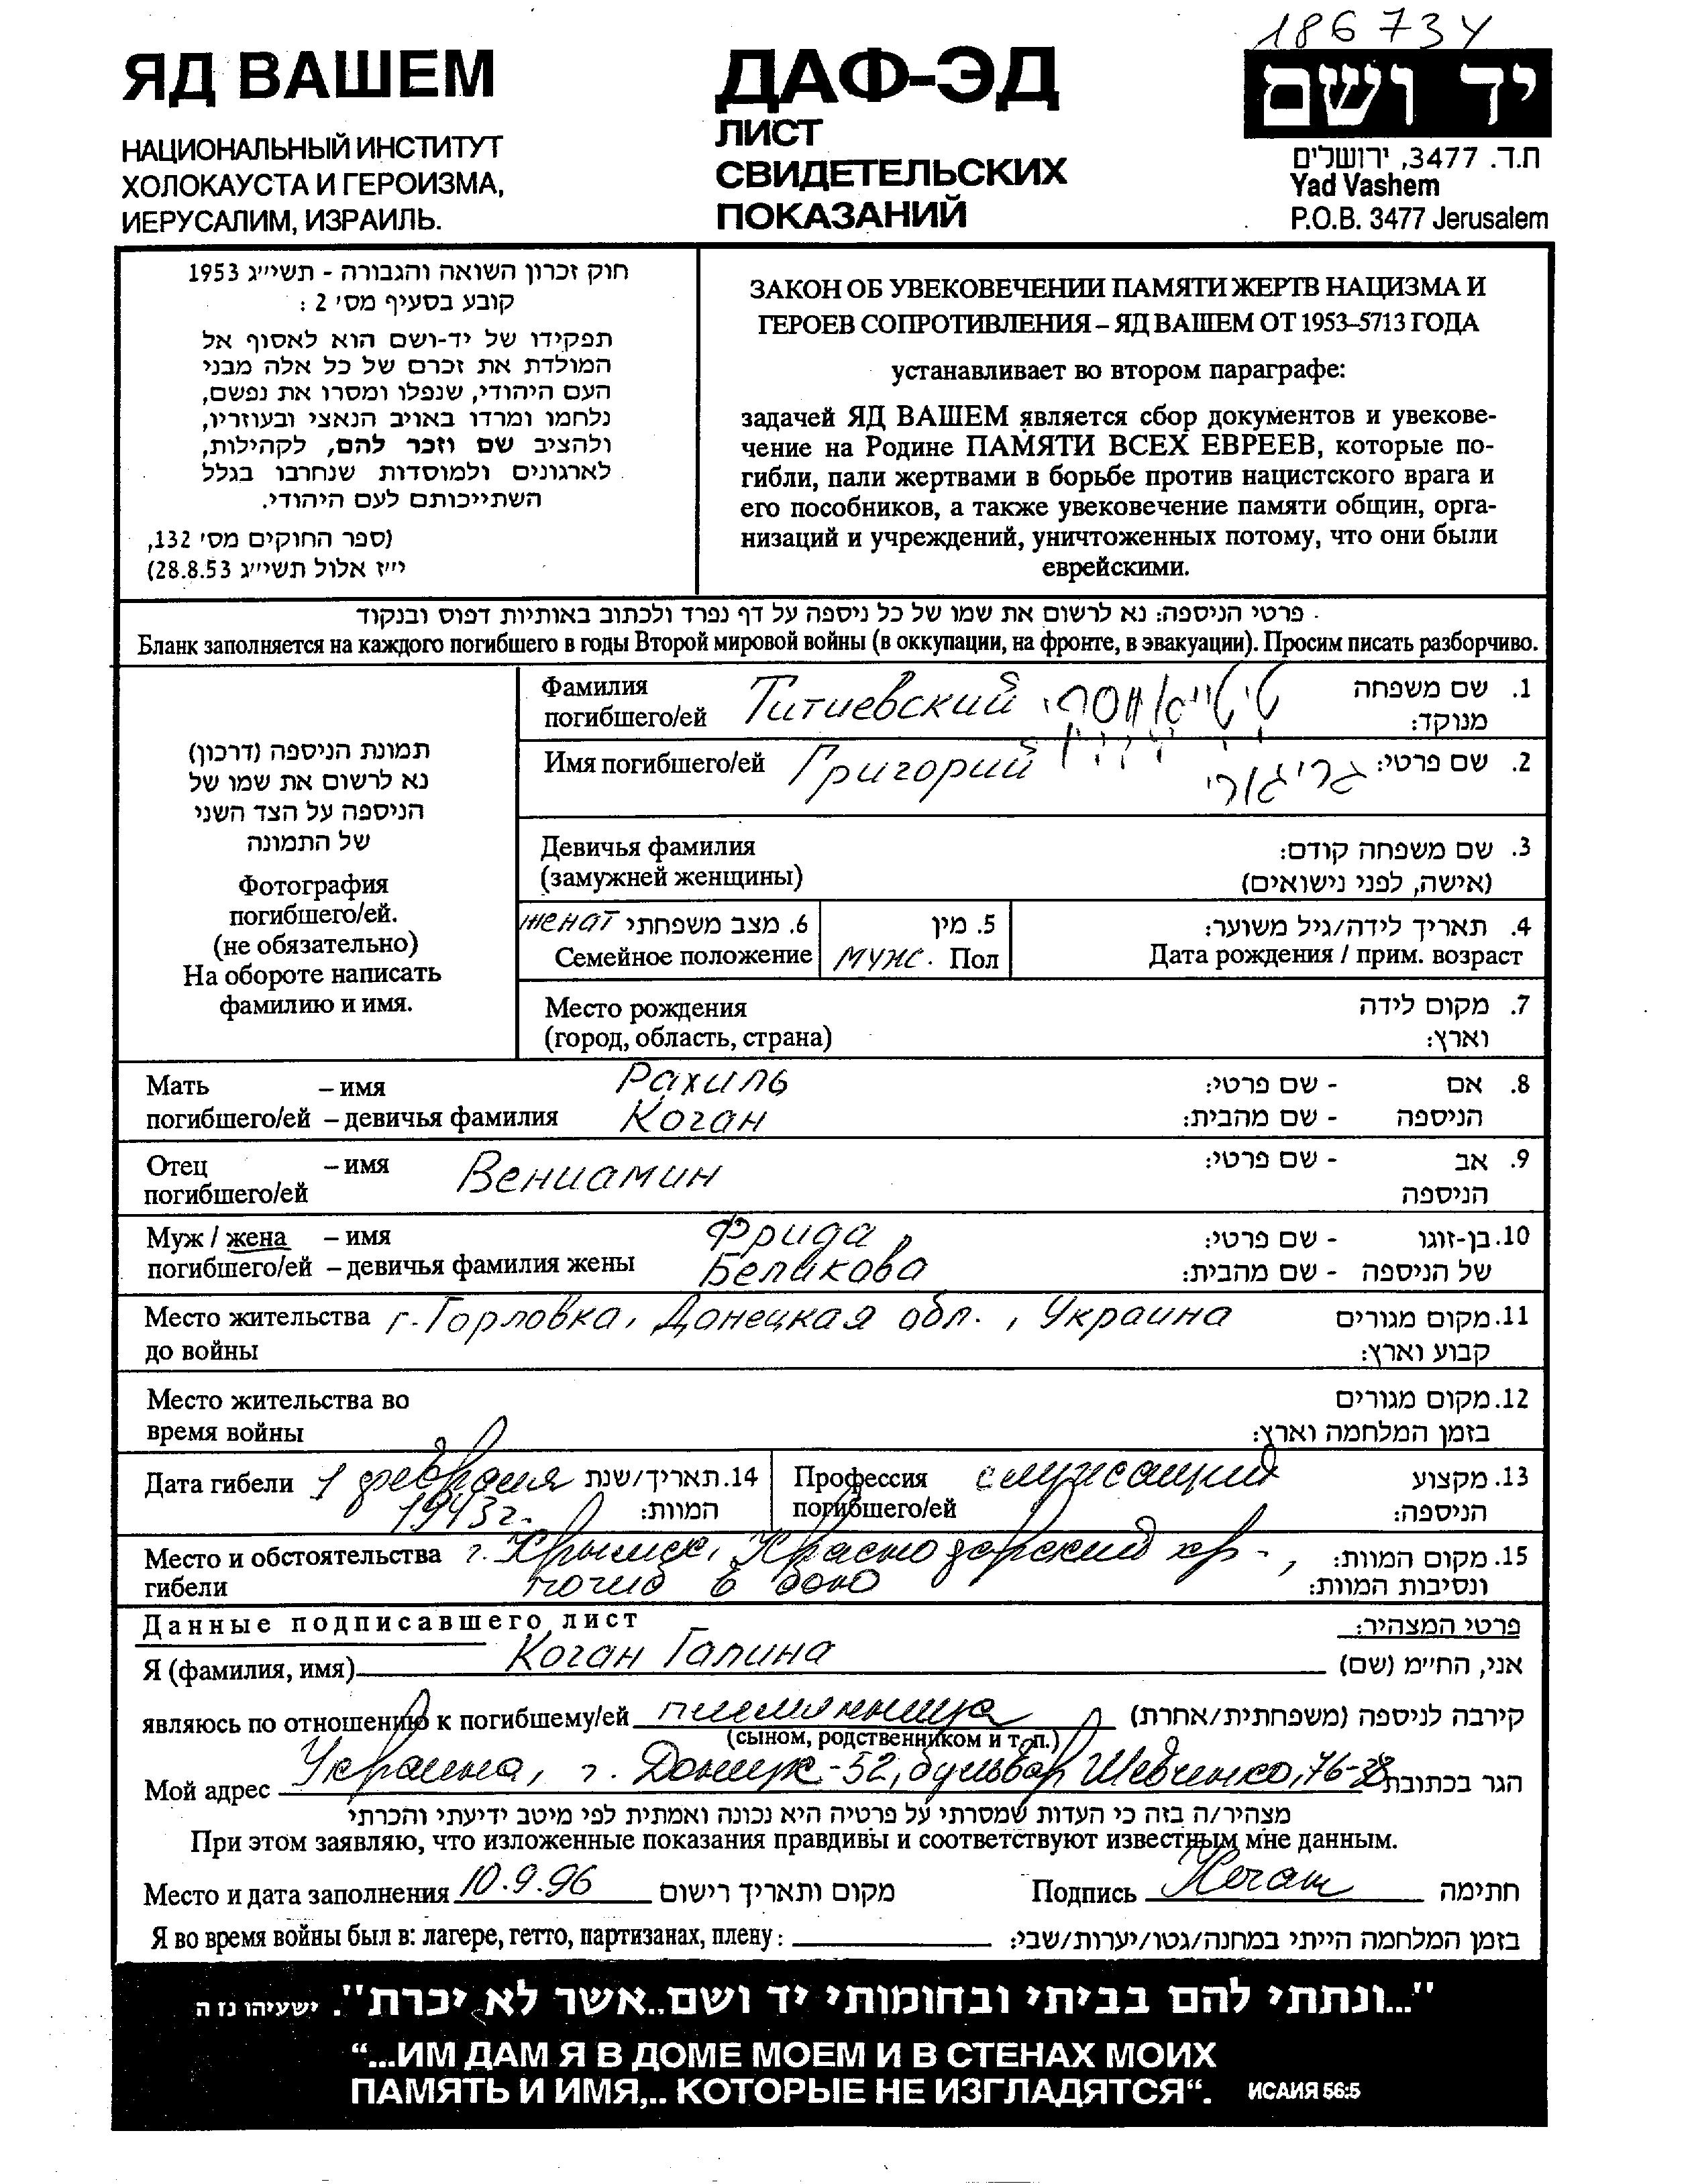 186734
ЯД ВАШЕМ
НАЦИОНАЛЬНЫЙ ИНСТИТУТ
ХОЛОКАУСТА И ГЕРОИЗМА,
ИЕРУСАЛИМ, ИЗРАИЛЬ.
ДАФ-ЭД
ЛИСТ
СВИДЕТЕЛЬСКИХ
ПОКАЗАНИЙ
יד ושם
ת.ד. 3477, ירושלים
Yad Vashem
P.O.B. 3477 Jerusalem
חוק זכרון השואה והגבורה - תשי״ג 1953
קובע בסעיף מס׳ 2 :
תפקידו של יד-ושם הוא לאסוף אל
המולדת את זכרם של כל אלה מבני
העם היהודי, שנפלו ומסרו את נפשם,
נלחמו ומרדו באויב הנאצי ובעוזריו,
ולהציב שם וזכר להם, לקהילות,
לארגונים ולמוסדות שנחרבו בגלל
השתייכותם לעם היהודי.
(ספר החוקים מס׳ 132,
י״ז אלול תשי״ג 28.8.53)
ЗАКОН ОБ УВЕКОВЕЧЕНИИ ПАМЯТИ ЖЕРТВ НАЦИЗМА И
ГЕРОЕВ СОПРОТИВЛЕНИЯ – ЯД ВАШЕМ ОТ 1953–5713 ГОДА
устанавливает во втором параграфе:
задачей ЯД ВАШЕМ является сбор документов и увекове-
чение на Родине ПАМЯТИ ВСЕХ ЕВРЕЕВ, которые по-
гибли, пали жертвами в борьбе против нацистского врага и
его пособников, а также увековечение памяти общин, орга-
низаций и учреждений, уничтоженных потому, что они были
еврейскими.
פרטי הניספה: נא לרשום את שמו של כל ניספה על דף נפרד ולכתוב באותיות דפוס ובנקוד .
Бланк заполняется на каждого погибшего в годы Второй мировой войны (в оккупации, на фронте, в эвакуации). Просим писать разборчиво.
תמונת הניספה (דרכון)
נא לרשום את שמו של
הניספה על הצד השני
של התמונה
Фотография
погибшего/ей.
(не обязательно)
На обороте написать
фамилию и имя.
Фамилия Титиевский 1. שם משפחה
погибшего/ей מנוקד:
Имя погибшего/ей Григорий גריגורי 2. שם פרטי:
Девичья фамилия 3. שם משפחה קודם:
(замужней женщины) (אישה, לפני נישואים)
женат 6. מצב משפחתי 5. מין 4. תאריך לידה/גיל משוער:
Семейное положение муж. Пол Дата рождения / прим. возраст
Место рождения 7. מקום לידה
(город, область, страна) וארץ:
Мать – имя Рахиль 8. אם - שם פרטי:
погибшего/ей – девичья фамилия Коган הניספה - שם מהבית:
Отец – имя Вениамин 9. אב - שם פרטי:
погибшего/ей הניספה
Муж / жена – имя Фрида 10. בן-זוגו - שם פרטי:
погибшего/ей – девичья фамилия жены Беликова של הניספה - שם מהבית:
Место жительства г. Горловка, Донецкая обл., Украина 11. מקום מגורים
до войны קבוע וארץ:
Место жительства во 12. מקום מגורים
время войны בזמן המלחמה וארץ:
Дата гибели 1 февраля 14. תאריך/שנת Профессия служащий 13. מקצוע
1943г. המוות: погибшего/ей הניספה:
Место и обстоятельства г. Крымск, Краснодарский кр-, 15. מקום המוות:
гибели погиб в бою ונסיבות המוות:
Данные подписавшего лист פרטי המצהיר:
Я (фамилия, имя) Коган Галина אני, החי״מ (שם)
являюсь по отношению к погибшему/ей племянница קירבה לניספה (משפחתית/אחרת)
(сыном, родственником и т.п.)
Мой адрес Украина, г. Донецк-52, бульвар Шевченко, 76-38 הגר בכתובת
מצהיר/ה בזה כי העדות שמסרתי על פרטיה היא נכונה ואמתית לפי מיטב ידיעתי והכרתי
При этом заявляю, что изложенные показания правдивы и соответствуют известным мне данным.
Место и дата заполнения 10.9.96 מקום ותאריך רישום Подпись Коган חתימה
Я во время войны был в: лагере, гетто, партизанах, плену: בזמן המלחמה הייתי במחנה/גטו/יערות/שבי:
"...ונתתי להם בביתי ובחומותי יד ושם..אשר לא יכרת". ישעיהו נז ה
“...ИМ ДАМ Я В ДОМЕ МОЕМ И В СТЕНАХ МОИХ
ПАМЯТЬ И ИМЯ,.. КОТОРЫЕ НЕ ИЗГЛАДЯТСЯ“. ИСАИЯ 56:5